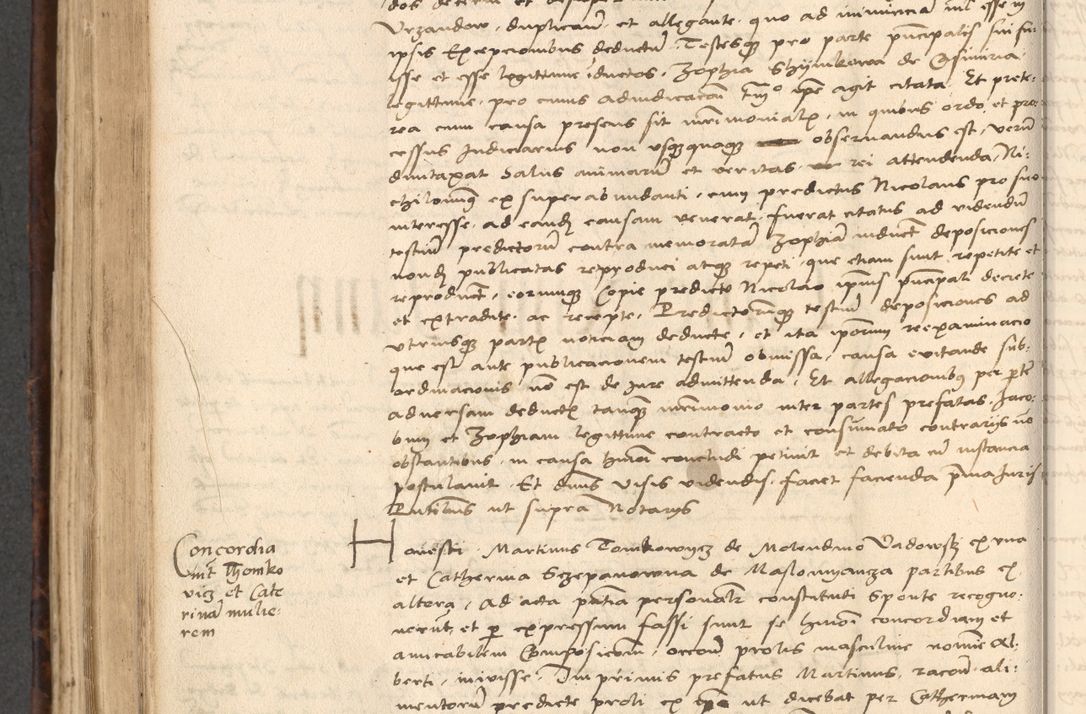 Vrzandow, duplicauit et allegante, quo ad
ipsis Excepcionibus deductum, Testesque pro parte principalis sui fu-
isse et esse legittime ductos, Zophia de Casimiria
legittime, pro cuius adiudicacione agit citata. Et prete-
rea cum causa presens sit mrimonialis, in quibus ordo et pro-
cessus Iudiciarius non vsquequaque obseruandus est, verum
duntaxat salus animarum et veritas rei attendenda, Ni-
chilominus ex superabundanti, cum predictus Nicolaus pro suo
interesse, ad eandem causam venerat, fuerat citatus ad videndum
testium predictorum contra memoratam Zophiam induct deposiciones
nondum publicatas reproduci atque repeti, que etiam sunt repetite et
reproducte, eorumque Copie predicto Nicolao ipsius principali decrete
et extradite, ac recepte, Predictorumque testium deposiciones ad
vtriusque partis noticiam deducte, et ita ipsorum reexaminacio
que est ante publicacionem testium obmissa, causa euitande sub-
ordinacionis, non est de iure admittenda, Et allegacionibus per partem
aduersam deductis tanquam mrimonio inter partes prefatas, Jaco-
bum et Zophiam legittime contracto et consumato contrariis non
obstantibus, in causa huiusmodi concludi petiuit et debita cum instancia
postulauit. Et dominus visis videndis, faciet facienda prima Juris
Pntibus ut supra Notariis
Concordia
int Thomko
vicz et Cate
rinam mulie-
rem
Honesti Martinus Tomkowycz de Molendino Vadowskj ex vna
et Catherina Sczepanowna de Maslomyancza partibus ex
altera, ad acta pntia personaliter constituti sponte recogno-
uerunt, et per expressum fassi sunt se huiusmodi concordiam et
amicabilem Composicionem, occasione prolis masculine nomine Al-
berti, iniuisse. Imprimis prefatus Martinus, racione ali-
mentorum predicte proli ex ipsa ut dicebat per Catherinam